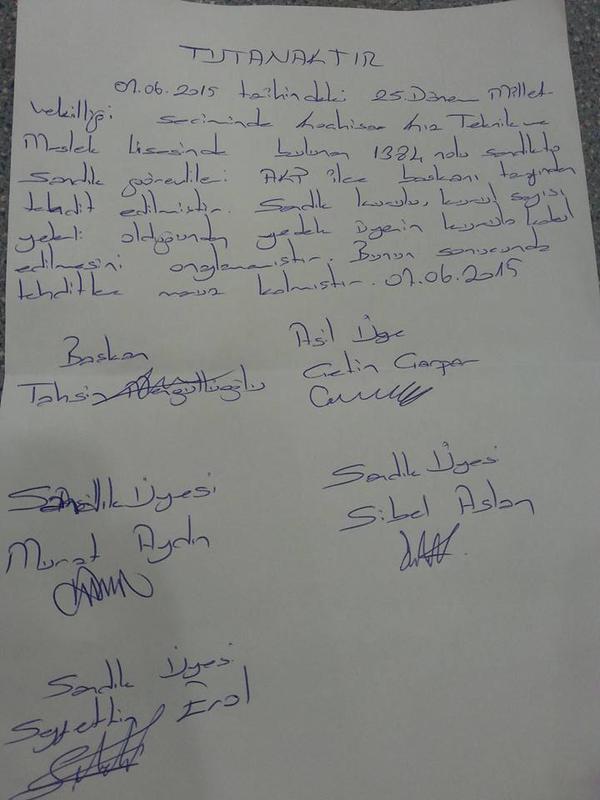 TUTANAKTIR
07.06.2015 tarihindeki 25.Dönem Millet
vekilliği seçiminde Kız Teknik ve
Meslek lisesinde bulunan 1384 nolu sandıkta
Sandık görevlileri AKP ilçe başkanı tarafından
tehdit edilmiştir. Sandık kurulu, kurul sayısı
yeterli olduğundan yedek üyenin kurula kabul
edilmesini onaylamamıştır. Bunun sonucunda
tehditlere maruz kalmıştır. 07.06.2015
Başkan
Asil Üye
Tahsin
Çetin
Sandık Üyesi
Sandık Üyesi
Murat Aydın
Sibel Aslan
Sandık Üyesi
Seyfettin Erol